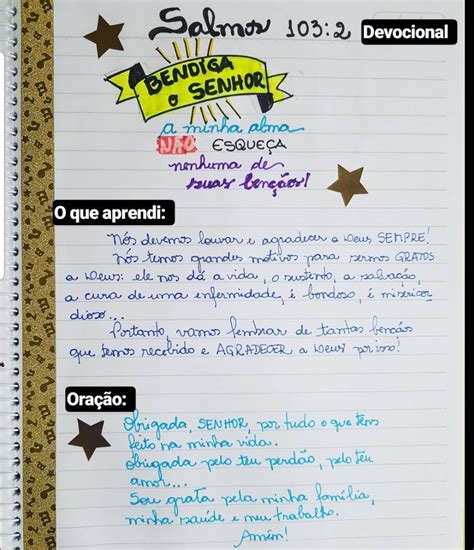 Salmos 103:2 Devocional
BENDIGA
O SENHOR
a minha alma
NÃO ESQUEÇA
nenhuma de
suas bençãos!
O que aprendi:
Nós devemos louvar e agradecer a Deus SEMPRE!
Nós temos grandes motivos para sermos GRATOS
a Deus... ele nos dá a vida, o sustento, a salvação,
a cura de uma enfermidade, é bondoso, é misericor-
dioso...
Portanto, vamos lembrar de tantas bençãos
que temos recebido e AGRADECER a Deus por isso!
Oração:
Obrigada, SENHOR, por tudo o que tens
feito na minha vida.
Obrigada pelo teu perdão, pelo teu
amor...
Sou grata pela minha família,
minha saúde e meu trabalho.
Amém!